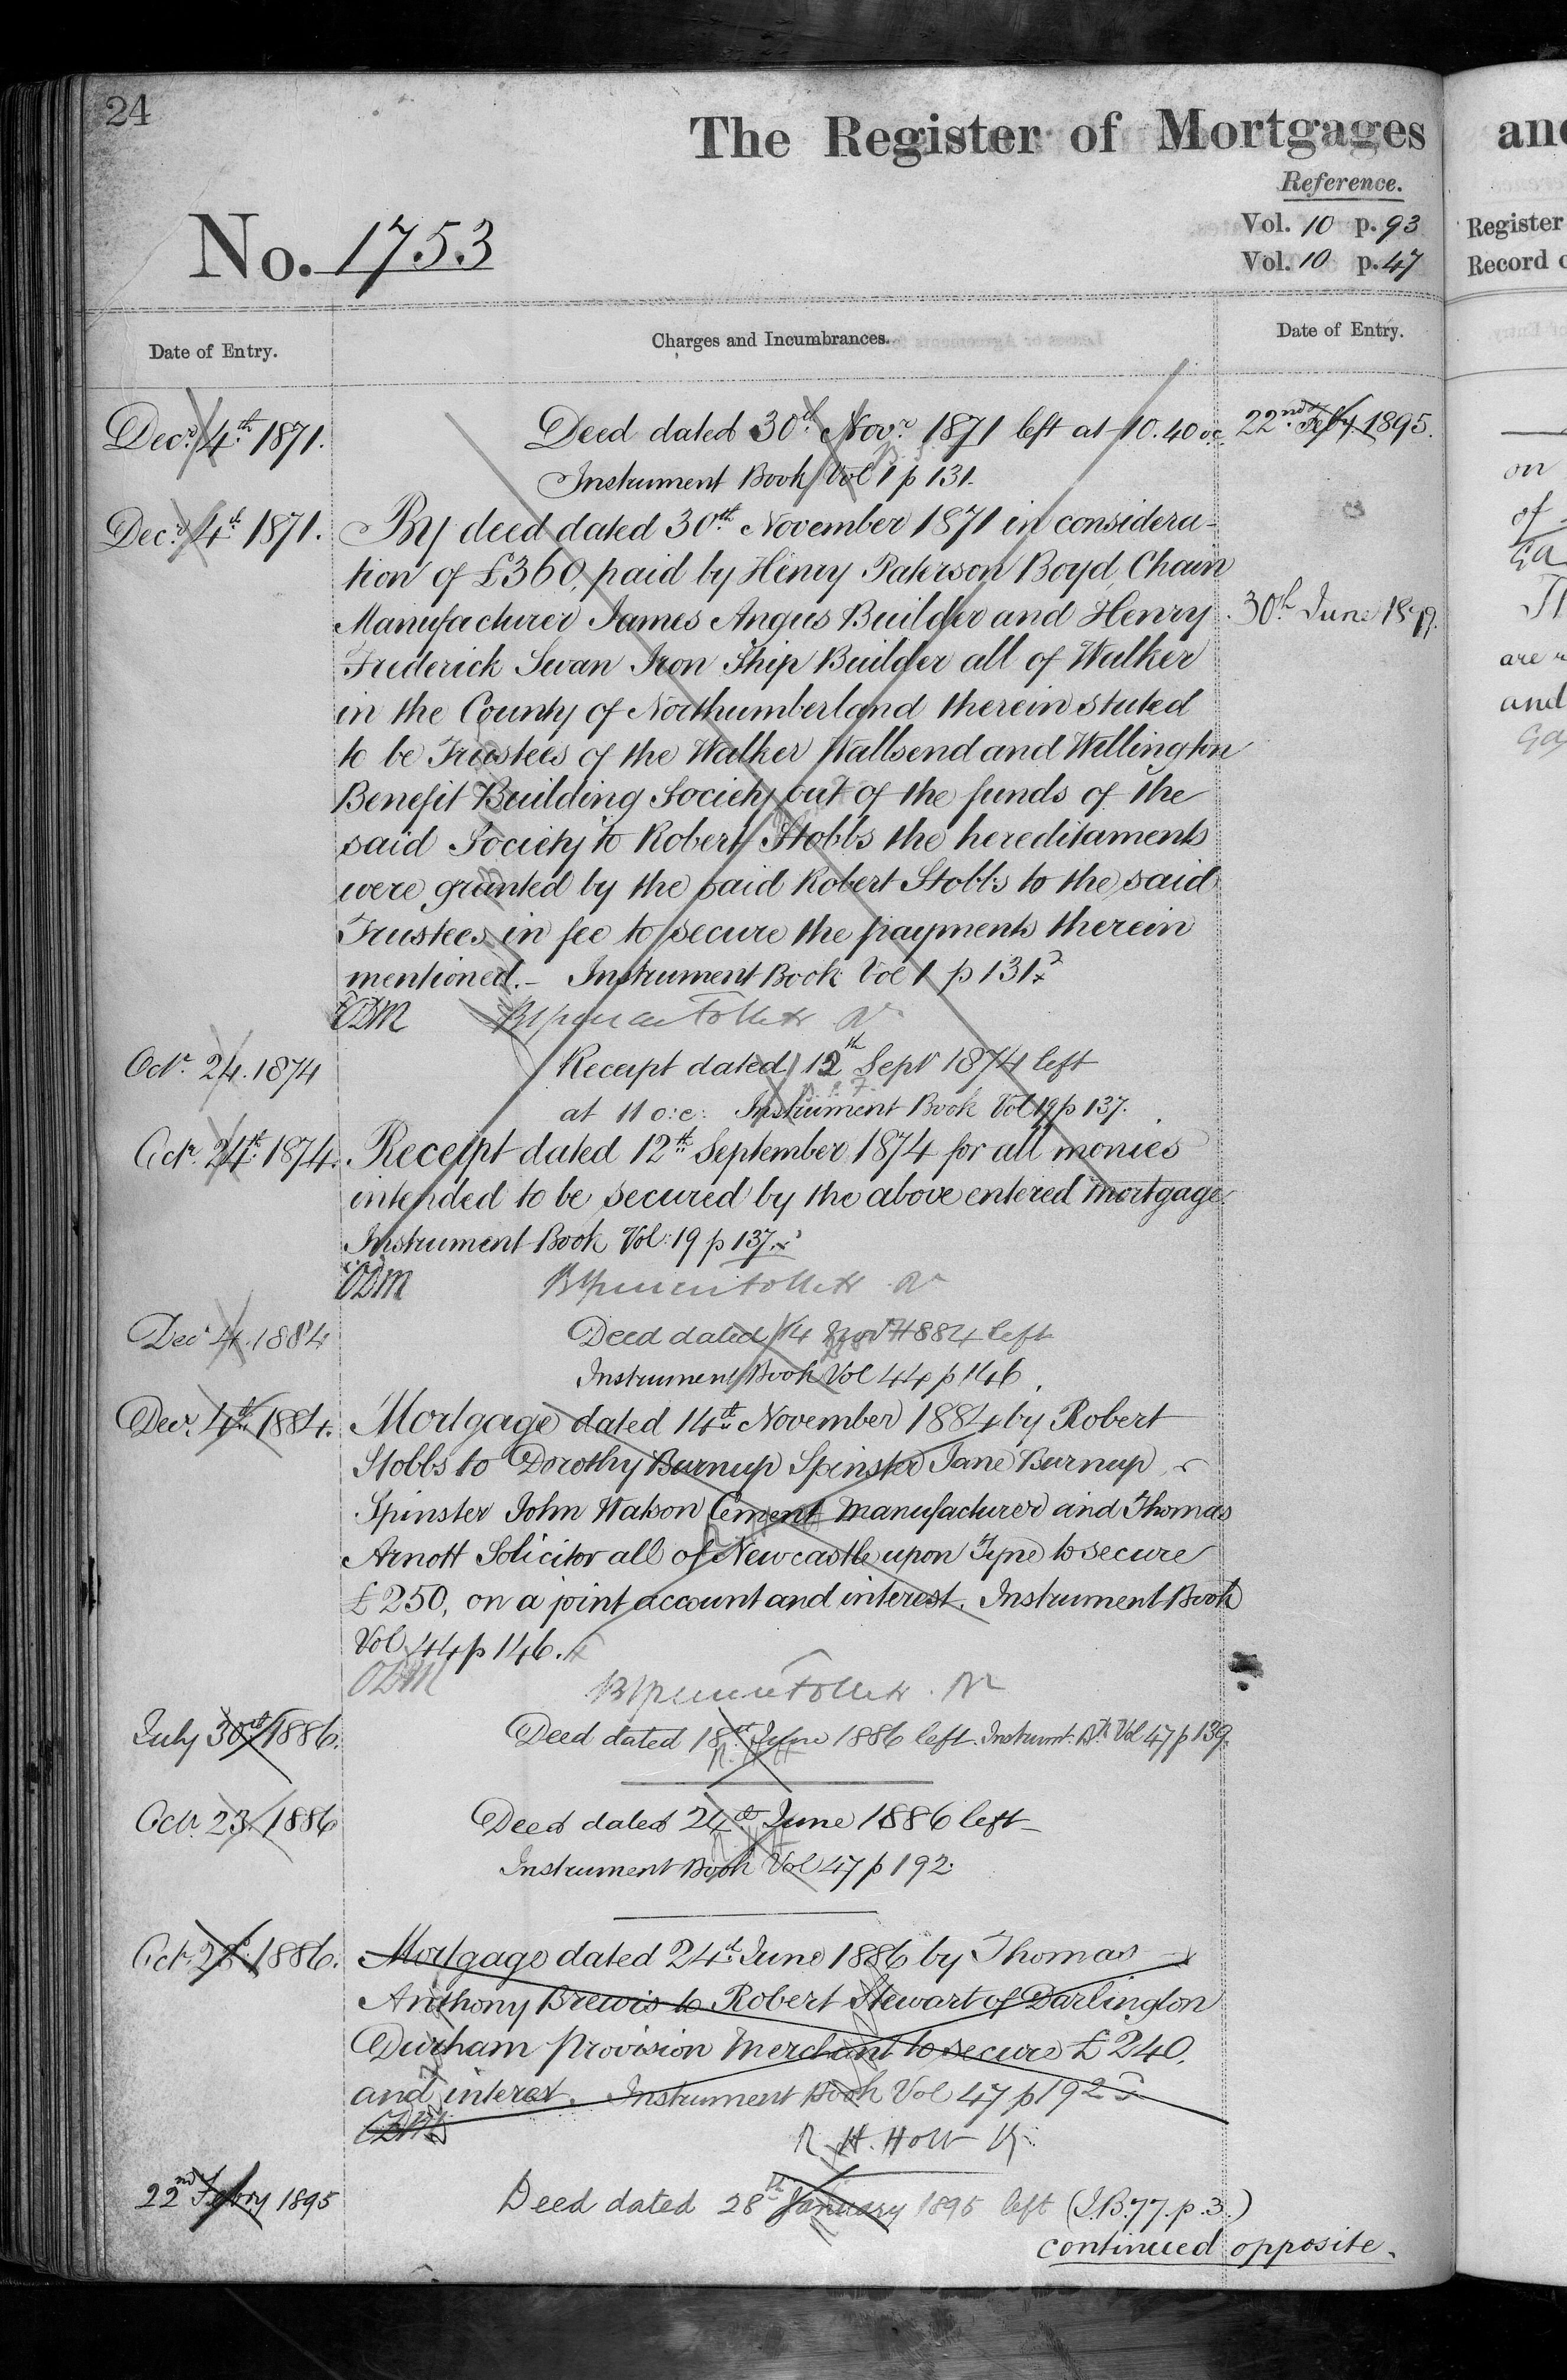 24
The Register of Mortgages
Reference.
No. 1753
Vol. 10 p. 93
Vol. 10 p. 47
Date of Entry.
Charges and Incumbrances.
Date of Entry.
Decr. 4th 1871.
Deed dated 30th Novr. 1871 left at 10.40 o.c.
Instrument Book Vol 1 p 131.
22nd Feby 1895.
Decr. 4th 1871.
By deed dated 30th November 1871 in considera-
tion of £360, paid by Henry Paterson Boyd, Chain
Manufacturer James Angus Builder and Henry
30th June
Frederick Swan Iron Ship Builder all of Walker
in the County of Northumberland therein stated
to be Trustees of the Walker Wallsend and Willington
Benefit Building Society out of the funds of the
said Society to Robert Stobbs the hereditaments
were granted by the said Robert Stobbs to the said
Trustees in fee to secure the payments therein
mentioned. - Instrument Book Vol 1 p 131.
ODM
Octr. 24. 1874
Receipt dated 12th Sepr 1874 left
at 11 o:c: Instrument Book Vol 19 p 137.
Octr. 24th 1874.
Receipt dated 12th September 1874 for all monies
intended to be secured by the above entered mortgage
Instrument Book Vol: 19 p 137.
ODM
Decr 4. 1884
Deed dated 14 Novr 1884 left
Instrument Book Vol 44 p 146.
Decr. 4th 1884.
Mortgage dated 14th November 1884 by Robert
Stobbs to Dorothy Burnup Spinster Jane Burnup
Spinster John Watson Cement Manufacturer and Thomas
Arnott Solicitor all of Newcastle upon Tyne to secure
£250, on a joint account and interest. Instrument Book
Vol 44 p 146.
ODM
July 30th 1886.
Deed dated 18th June 1886 left. Instrumt. Bk Vol 47 p 139.
Octr. 23. 1886
Deed dated 24th June 1886 left
Instrument Book Vol 47 p 192.
Octr. 1886.
Mortgage dated 24th June 1886 by Thomas
Anthony Brewis to Robert Stewart of Darlington
Durham Provision Merchant to secure £240.
and interest. Instrument Book Vol 47 p 192
ODM
R. H. Holt
22nd Febry 1895
Deed dated 28th January 1895 left (I.B. 77. p. 3.)
continued opposite.
and
Register
Record
on
of
are
and